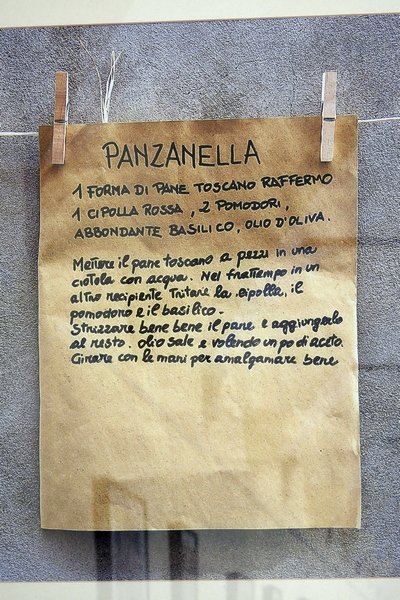 PANZANELLA
1 FORMA DI PANE TOSCANO RAFFERMO
1 CIPOLLA ROSSA, 2 POMODORI,
ABBONDANTE BASILICO, OLIO D'OLIVA.
Mettere il pane toscano a pezzi in una
ciotola con acqua. Nel frattempo in un
altro recipiente Tritare la cipolla, il
pomodoro e il basilico.
Strizzare bene bene il pane e aggiungerlo
al resto. olio sale e volendo un po di aceto.
Girare con le mani per amalgamare bene